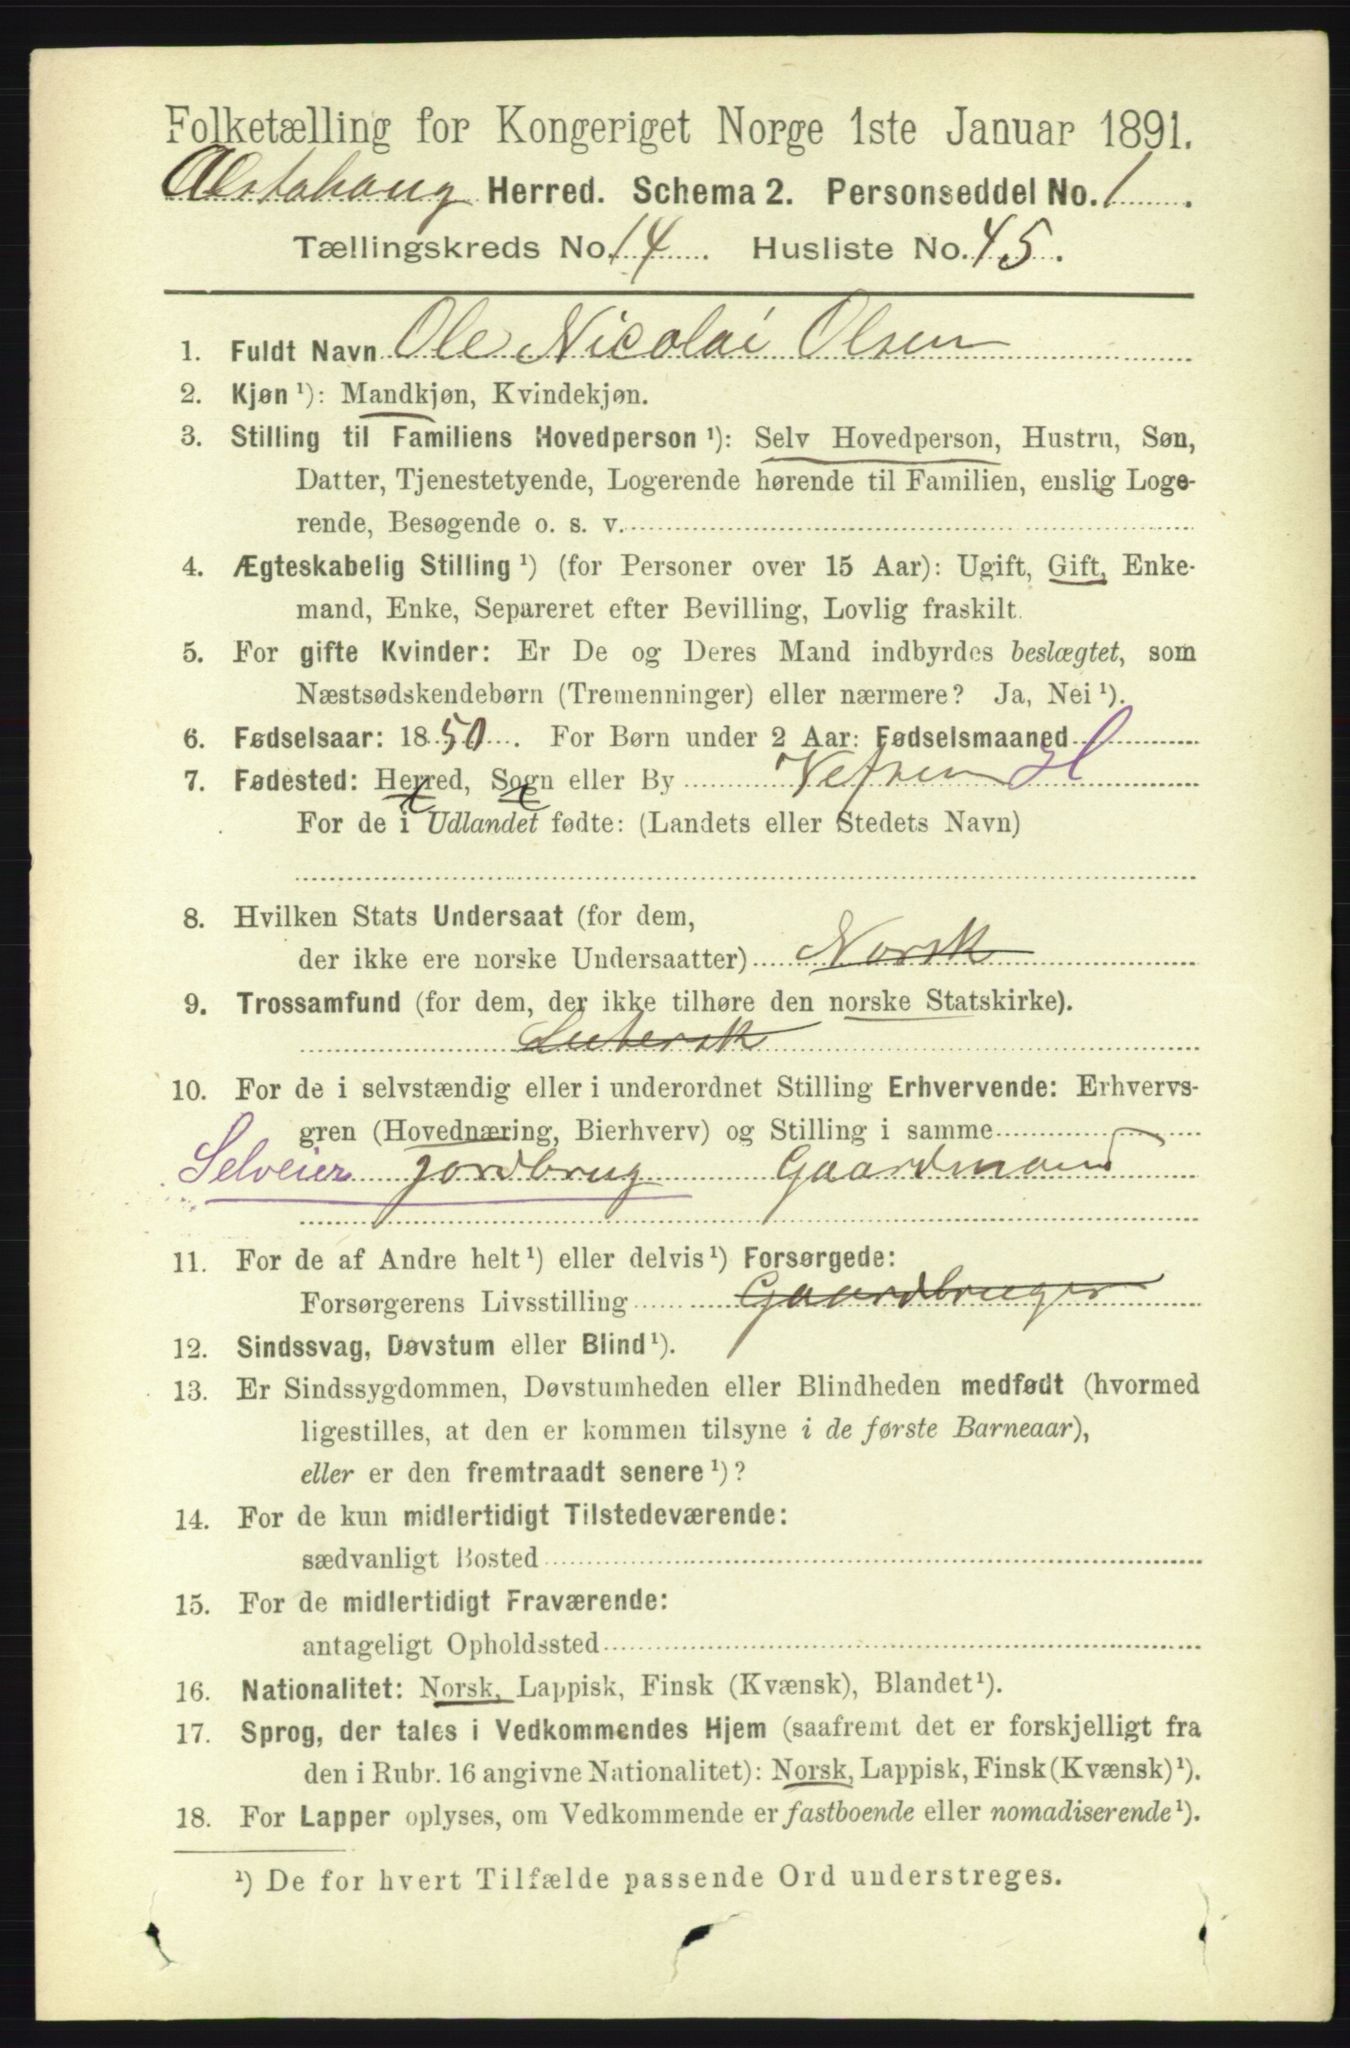 Folketælling for Kongeriget Norge 1ste Januar 1891.
Alstahaug Herred. Schema 2. Personseddel No. 1.
Tællingskreds No. 14. Husliste No. 45.
1. Fuldt Navn Ole Nicolai Olsen
2. Kjøn ¹): Mandkjøn, Kvindekjøn.
3. Stilling til Familiens Hovedperson ¹): Selv Hovedperson, Hustru, Søn,
Datter, Tjenestetyende, Logerende hørende til Familien, enslig Loge-
rende, Besøgende o. s. v.
4. Ægteskabelig Stilling ¹) (for Personer over 15 Aar): Ugift, Gift, Enke-
mand, Enke, Separeret efter Bevilling, Lovlig fraskilt.
5. For gifte Kvinder: Er De og Deres Mand indbyrdes beslægtet, som
Næstsødskendebørn (Tremenninger) eller nærmere? Ja, Nei ¹).
6. Fødselsaar: 1850. For Børn under 2 Aar: Fødselsmaaned
7. Fødested: Herred, Sogn eller By Vefsen H
For de i Udlandet fødte: (Landets eller Stedets Navn)
8. Hvilken Stats Undersaat (for dem,
der ikke ere norske Undersaatter) Norsk
9. Trossamfund (for dem, der ikke tilhøre den norske Statskirke).
Lutersk
10. For de i selvstændig eller i underordnet Stilling Erhvervende: Erhvervs-
gren (Hovednæring, Bierhverv) og Stilling i samme
Selveier jordbrug Gaardmand
11. For de af Andre helt ¹) eller delvis ¹) Forsørgede:
Forsørgerens Livsstilling Gaardbruger
12. Sindssvag, Døvstum eller Blind ¹).
13. Er Sindssygdommen, Døvstumheden eller Blindheden medfødt (hvormed
ligestilles, at den er kommen tilsyne i de første Barneaar),
eller er den fremtraadt senere ¹)?
14. For de kun midlertidigt Tilstedeværende:
sædvanligt Bosted
15. For de midlertidigt Fraværende:
antageligt Opholdssted
16. Nationalitet: Norsk, Lappisk, Finsk (Kvænsk), Blandet ¹).
17. Sprog, der tales i Vedkommendes Hjem (saafremt det er forskjelligt fra
den i Rubr. 16 angivne Nationalitet): Norsk, Lappisk, Finsk (Kvænsk) ¹).
18. For Lapper oplyses, om Vedkommende er fastboende eller nomadiserende ¹).
¹) De for hvert Tilfælde passende Ord understreges.